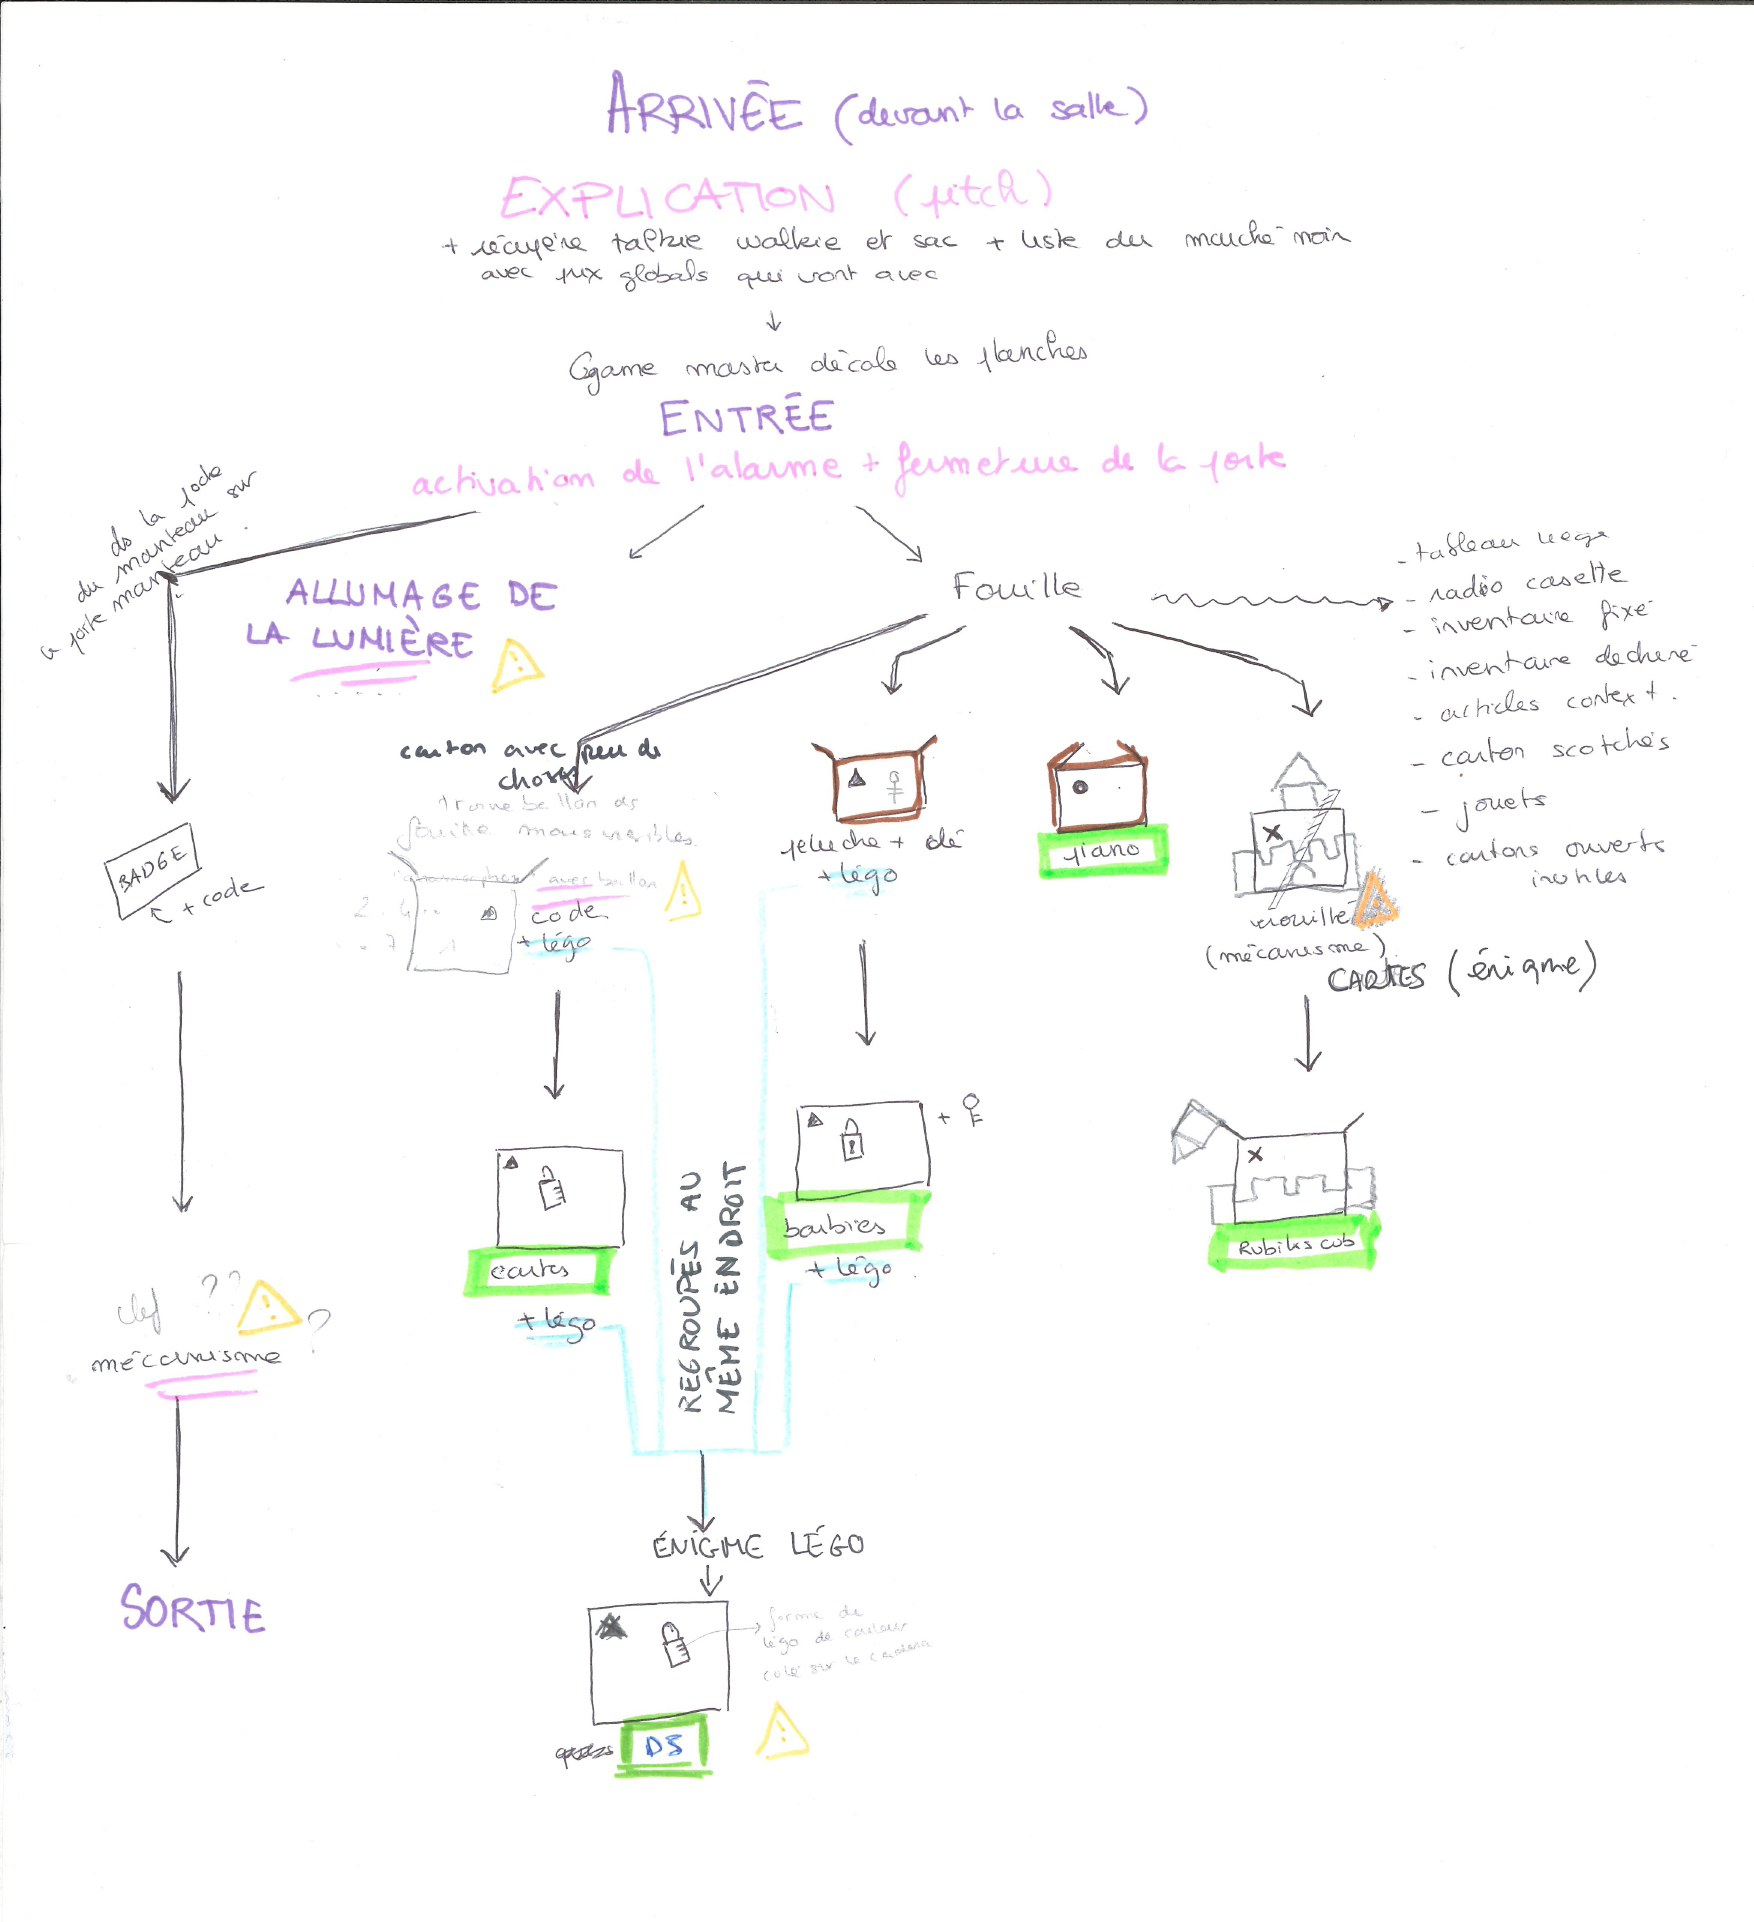 ARRIVÉE (devant la salle)
EXPLICATION (pitch)
+ récupère talkie walkie et sac + liste du marché noir
avec prix globals qui vont avec
Game master décale les planches
ENTRÉE
activation de l'alarme + fermeture de la porte
ds la poche
du manteau sur
porte manteau.
ALLUMAGE DE
LA LUMIÈRE
!
Fouille
- tableau liège
- radio casette
- inventaire fixé
- inventaire dechiré
- articles context.
- carton scotchés
- jouets
- cartons ouverts
inutiles
carton avec peu de
choses
ballon ds
fouille mais visibles
avec ballon
code
+ légo
!
peluche + clé
+ légo
piano
verrouillé
(mécanisme)
!
CARTES (énigme)
BADGE
+ code
cartes
+ légo
+
barbies
+ légo
Rubiks cub
REGROUPÉS AU
MÊME ENDROIT
clef ??
!
?
mécanisme
SORTIE
ÉNIGME LÉGO
forme de
légo de couleur
collé sur le cadena
DS
!